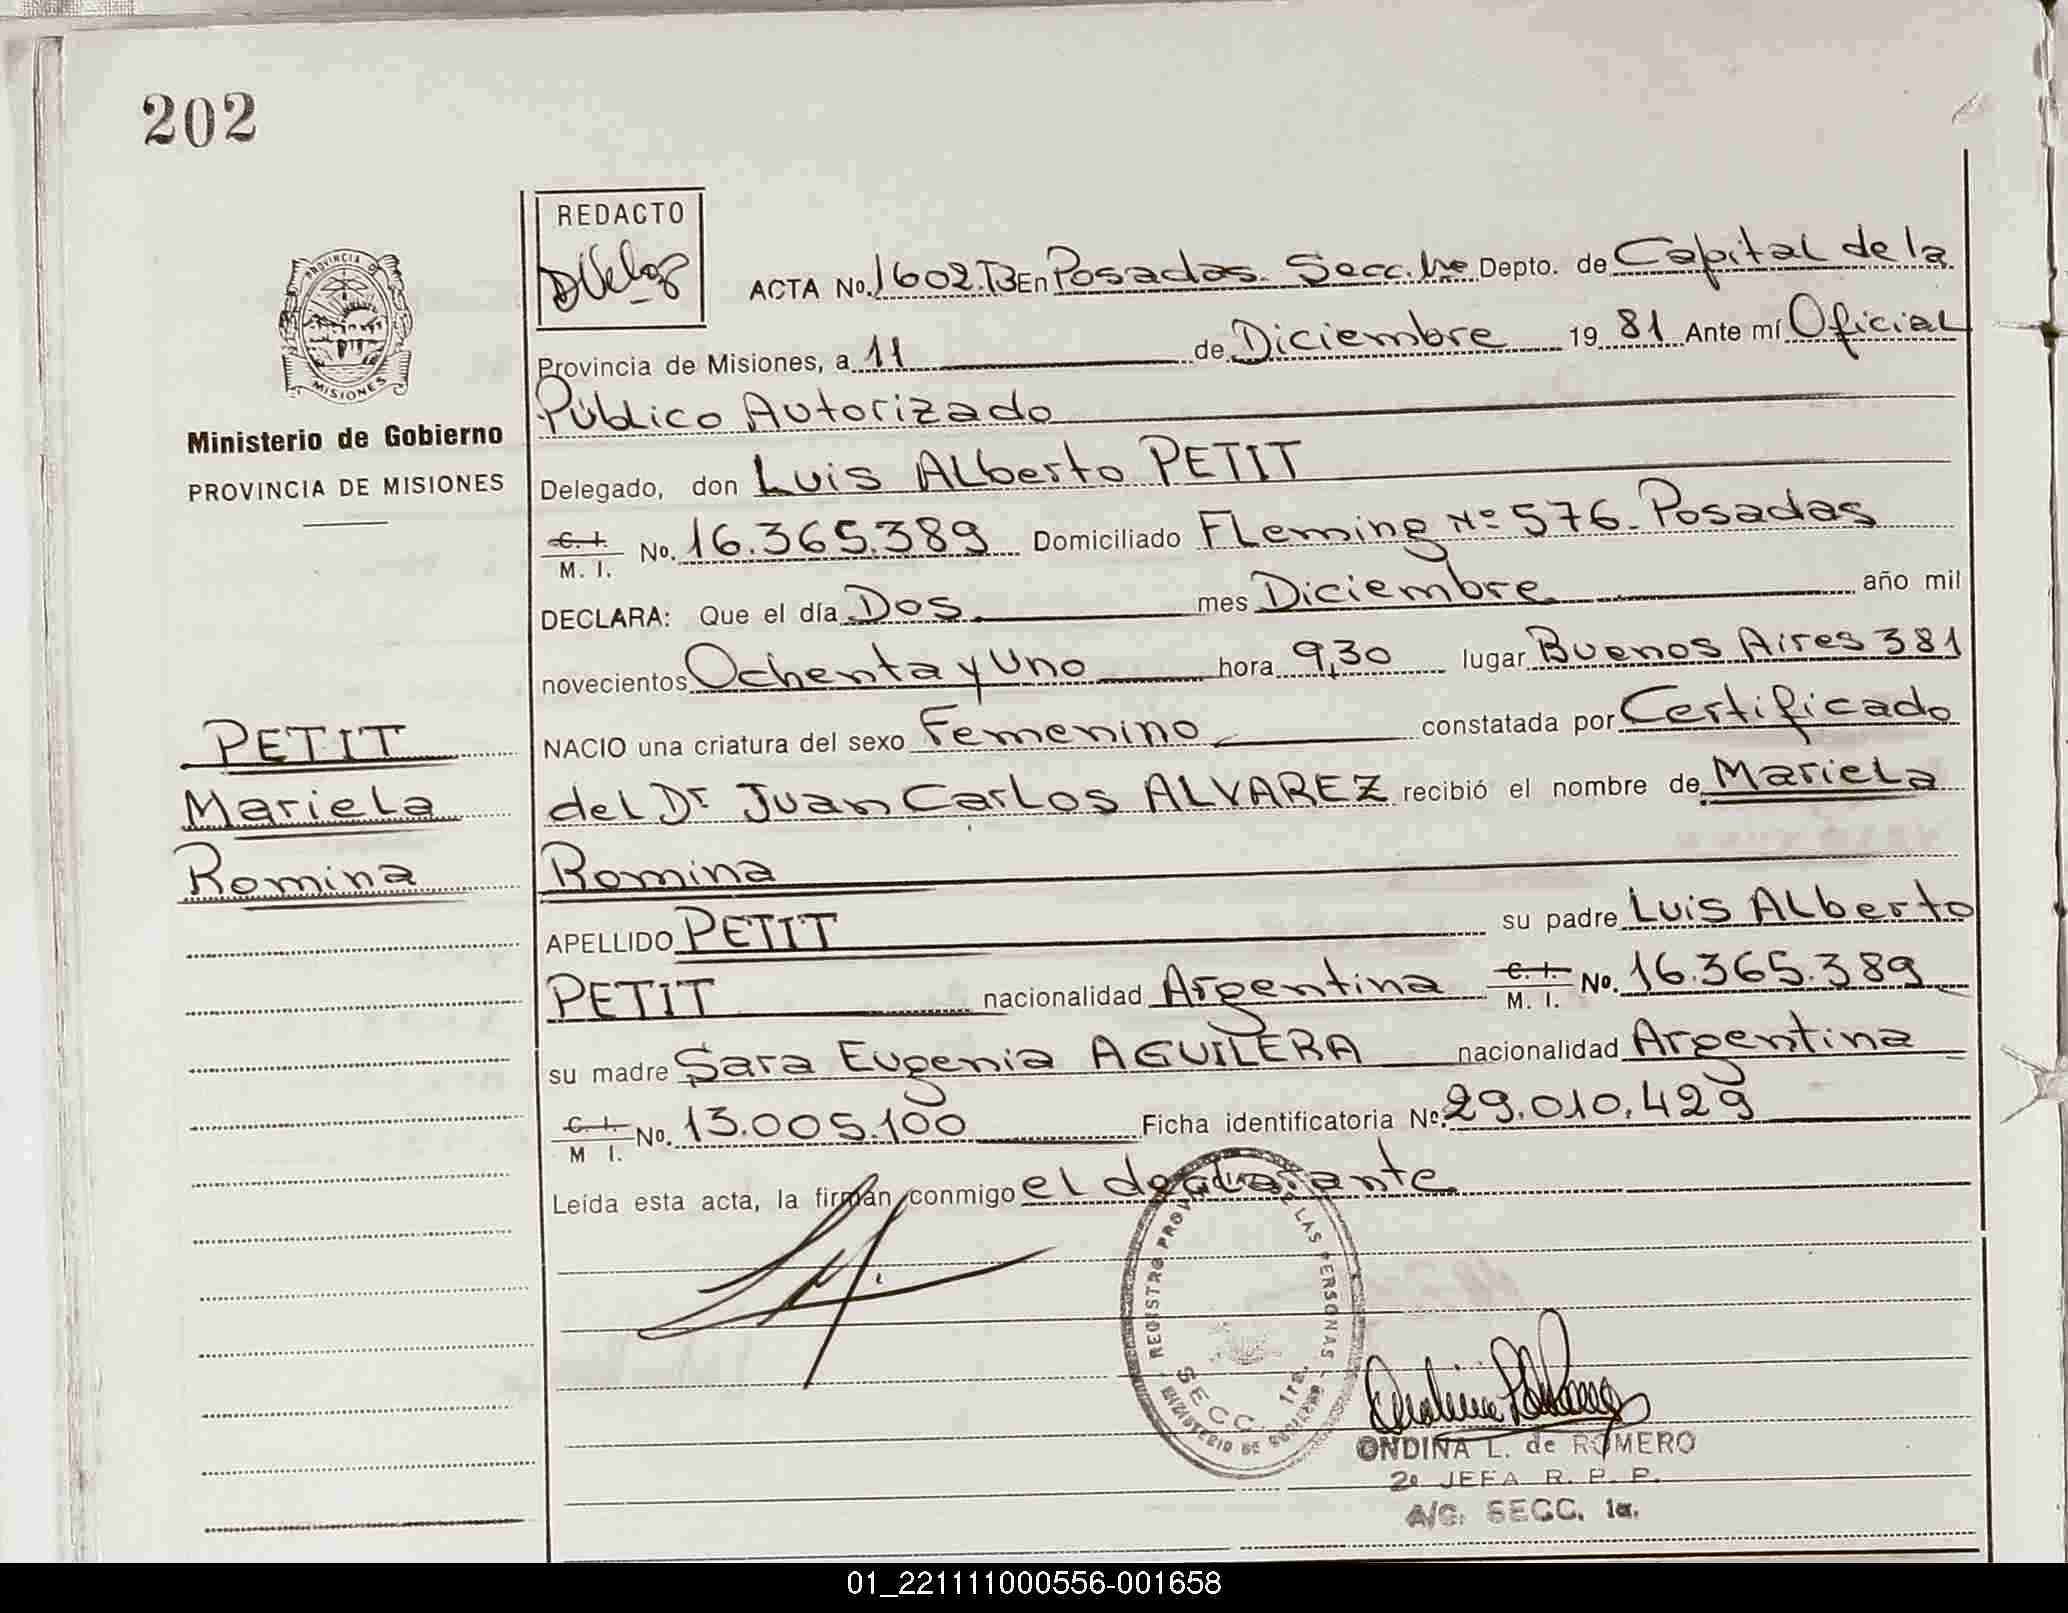 202
REDACTO
ACTA No. 1602.B En Posadas. Secc. 1ra Depto. de Capital de la
Provincia de Misiones, a 11 de Diciembre 19 81 Ante mí Oficial
Público Autorizado
PROVINCIA DE
MISIONES
Ministerio de Gobierno
PROVINCIA DE MISIONES
Delegado, don Luis Alberto PETIT
C. I.
M. I. No. 16.365.389 Domiciliado Fleming Nº 576. Posadas
DECLARA: Que el día Dos mes Diciembre año mil
novecientos Ochenta y Uno hora 9,30 lugar Buenos Aires 381
NACIO una criatura del sexo Femenino constatada por Certificado
del Dr Juan Carlos ALVAREZ recibió el nombre de Mariela
Romina
PETIT
Mariela
Romina
APELLIDO PETIT su padre Luis Alberto
PETIT nacionalidad Argentina C. I.
M. I. No. 16.365.389
su madre Sara Eugenia AGUILERA nacionalidad Argentina
C. I.
M I. No. 13.005.100 Ficha identificatoria Nº. 29.010.429
Leída esta acta, la firman conmigo el declarante
REGISTRO PROV DE LAS PERSONAS
SECC. 1ra.
MINISTERIO DE GOBIERNO
ONDINA L. de ROMERO
2º JEFA R. P. P.
A/C. SECC. 1a.
01_221111000556-001658